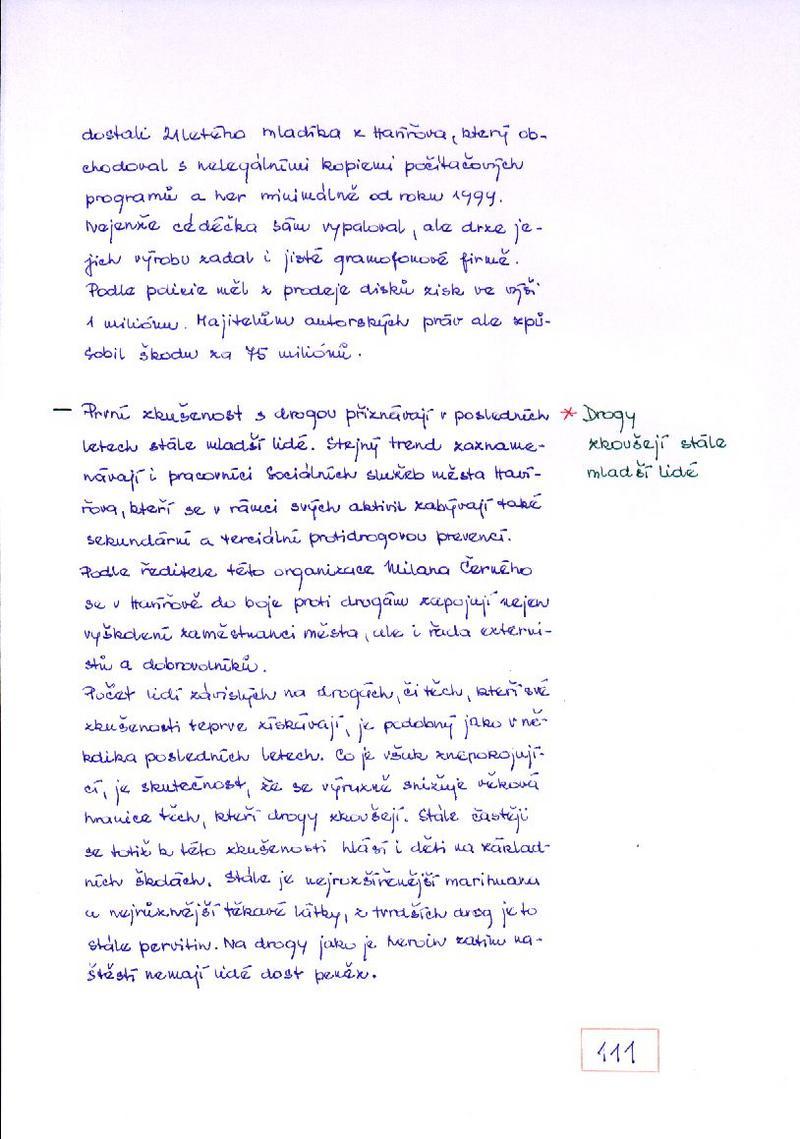 dostali 21letého mladíka z Havířova, který ob-
chodoval s nelegálními kopiemi počítačových
programů a her minimálně od roku 1999.
Nejenže cédéčka sám vypaloval, ale drze je-
jich výrobu zadal i jisté gramofonové firmě.
Podle policie měl z prodeje disků zisk ve výši
1 miliónu. Majitelům autorských práv ale způ-
sobil škodu za 75 miliónů.
– První zkušenost s drogou přiznávají v posledních
letech stále mladší lidé. Stejný trend zazname-
návají i pracovníci Sociálních služeb města Haví-
řova, kteří se v rámci svých aktivit zabývají také
sekundární a terciální protidrogovou prevencí.
Podle ředitele této organizace Milana Černého
se v Havířově do boje proti drogám zapojují nejen
vyškolení zaměstnanci města, ale i řada externi-
stů a dobrovolníků.
Počet lidí závislých na drogách, či těch, kteří své
zkušenosti teprve získávají, je podobný jako v ně-
kolika posledních letech. Co je však znepokojují-
cí, je skutečnost, že se výrazně snižuje věková
hranice těch, kteří drogy zkoušejí. Stále častěji
se totiž k této zkušenosti hlásí i děti na základ-
ních školách. Stále je nejrozšířenější marihuana
a nejrůznější těkavé látky, z tvrdších drog je to
stále pervitin. Na drogy jako je heroin zatím na-
štěstí nemají lidé dost peněz.
* Drogy
zkoušejí stále
mladší lidé
111